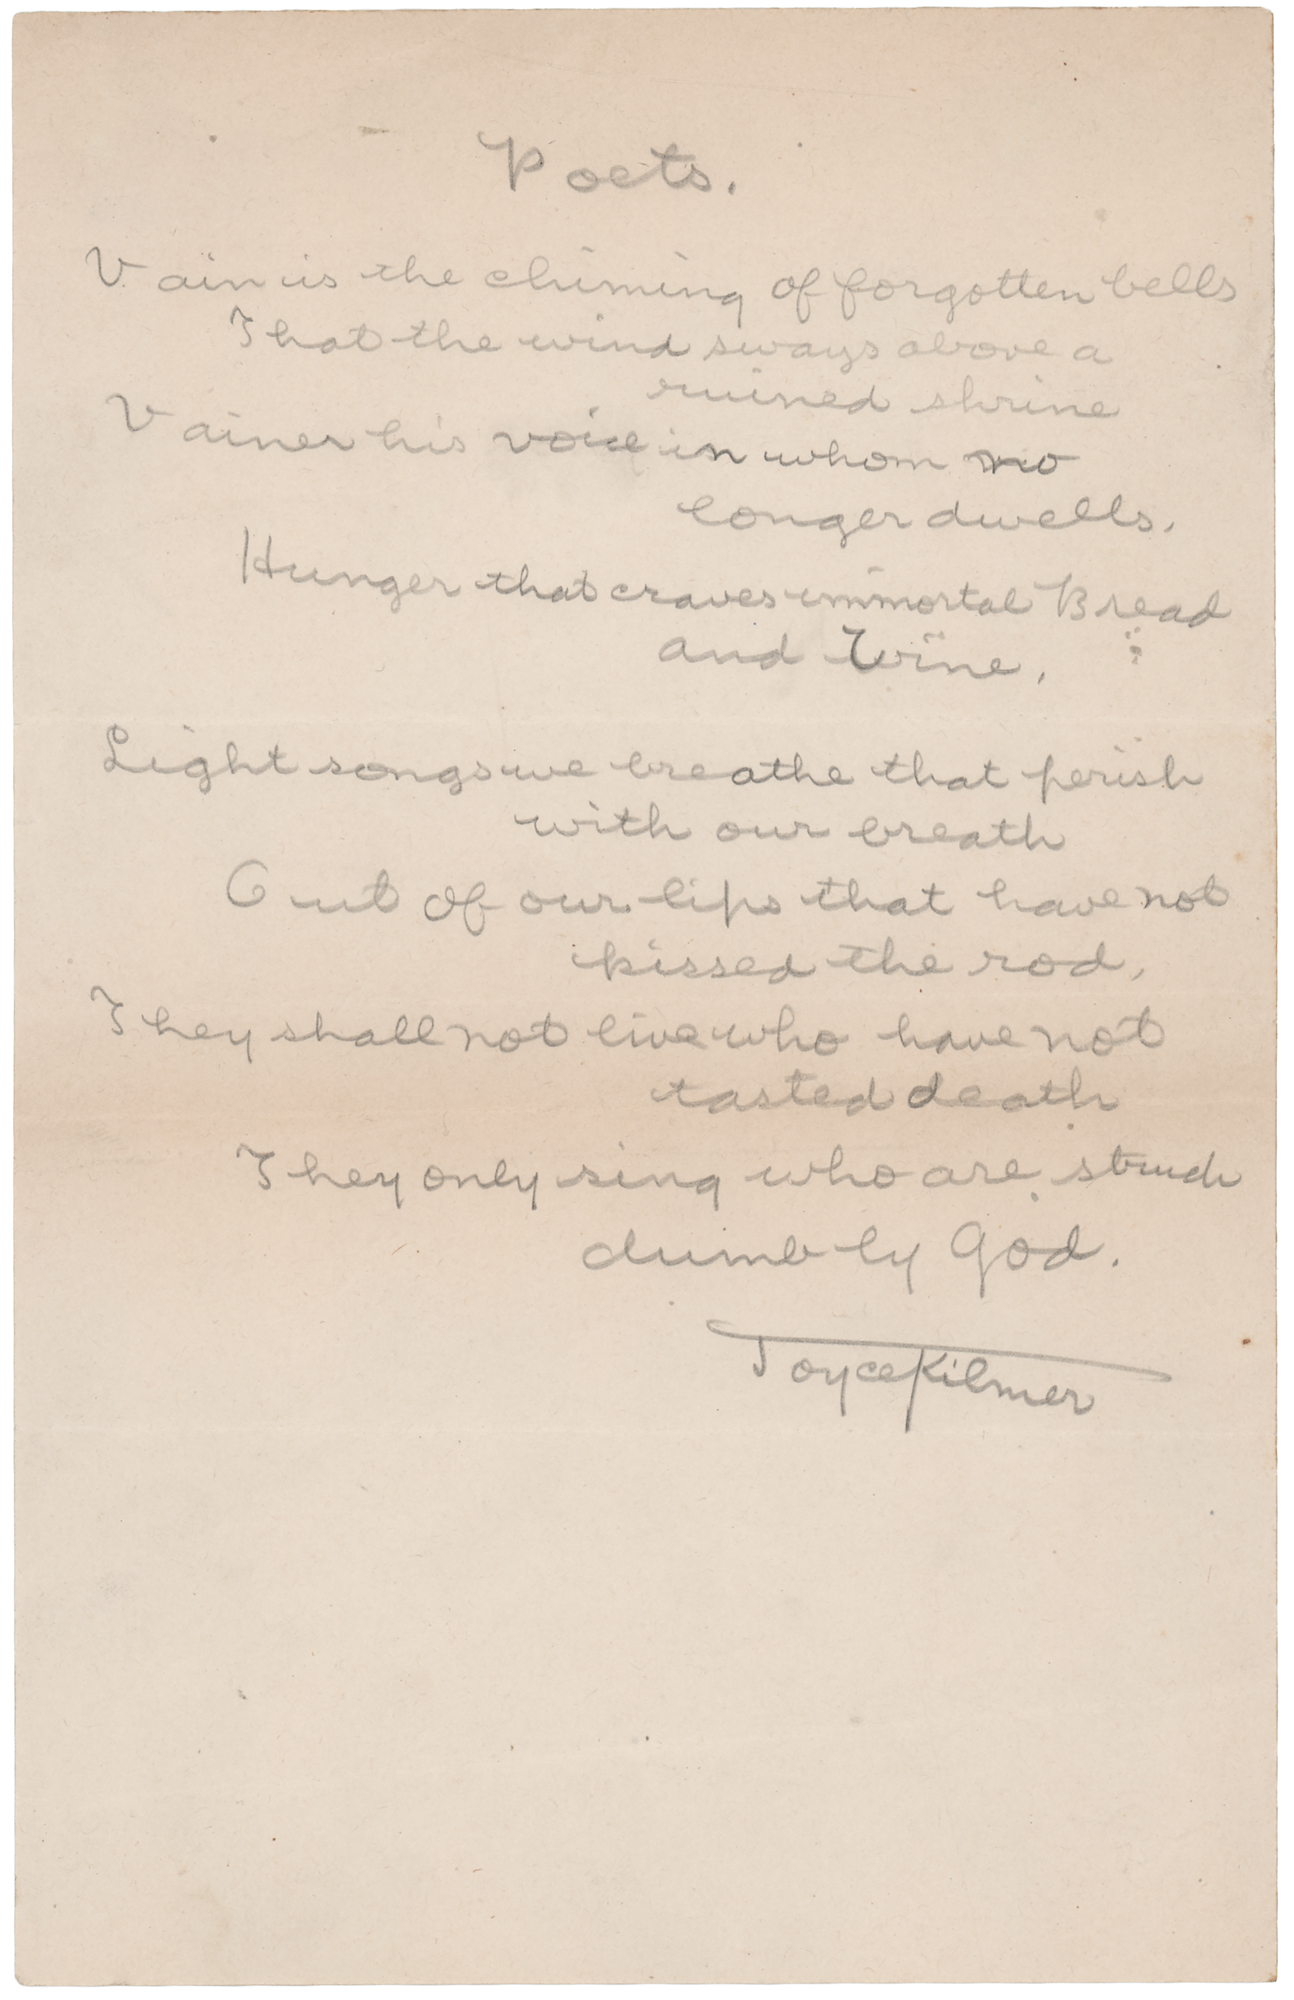 Poets.
Vain is the chiming of forgotten bells
That the wind sways above a
ruined shrine
Vainer his voice in whom no
longer dwells.
Hunger that craves immortal Bread
and Wine.
Light songs we breathe that perish
with our breath
Out of our lips that have not
kissed the rod,
They shall not live who have not
tasted death
They only sing who are struck
dumb by God.
Joyce Kilmer